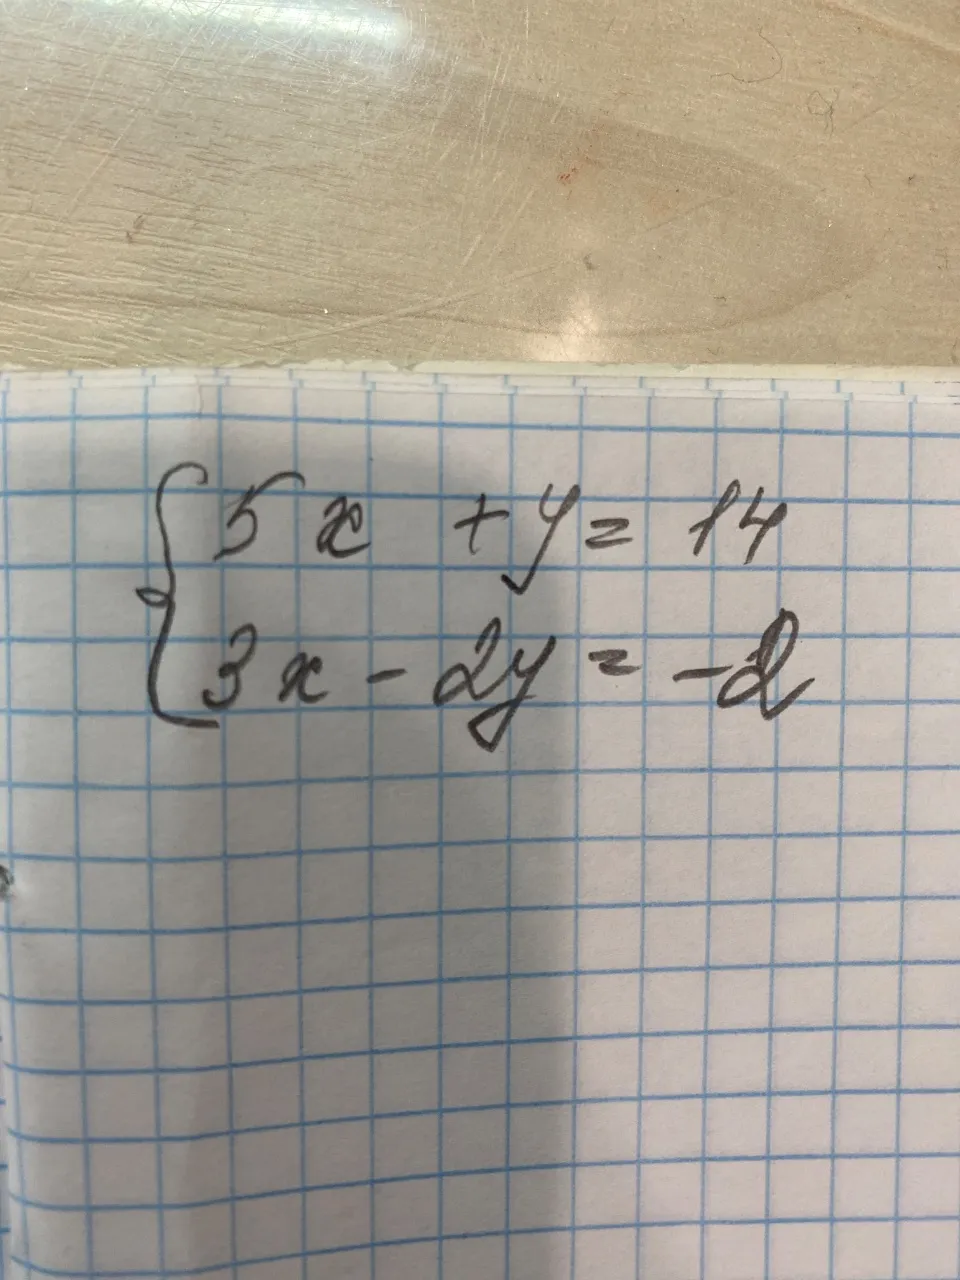 5x + y = 14
3x - 2y = -2